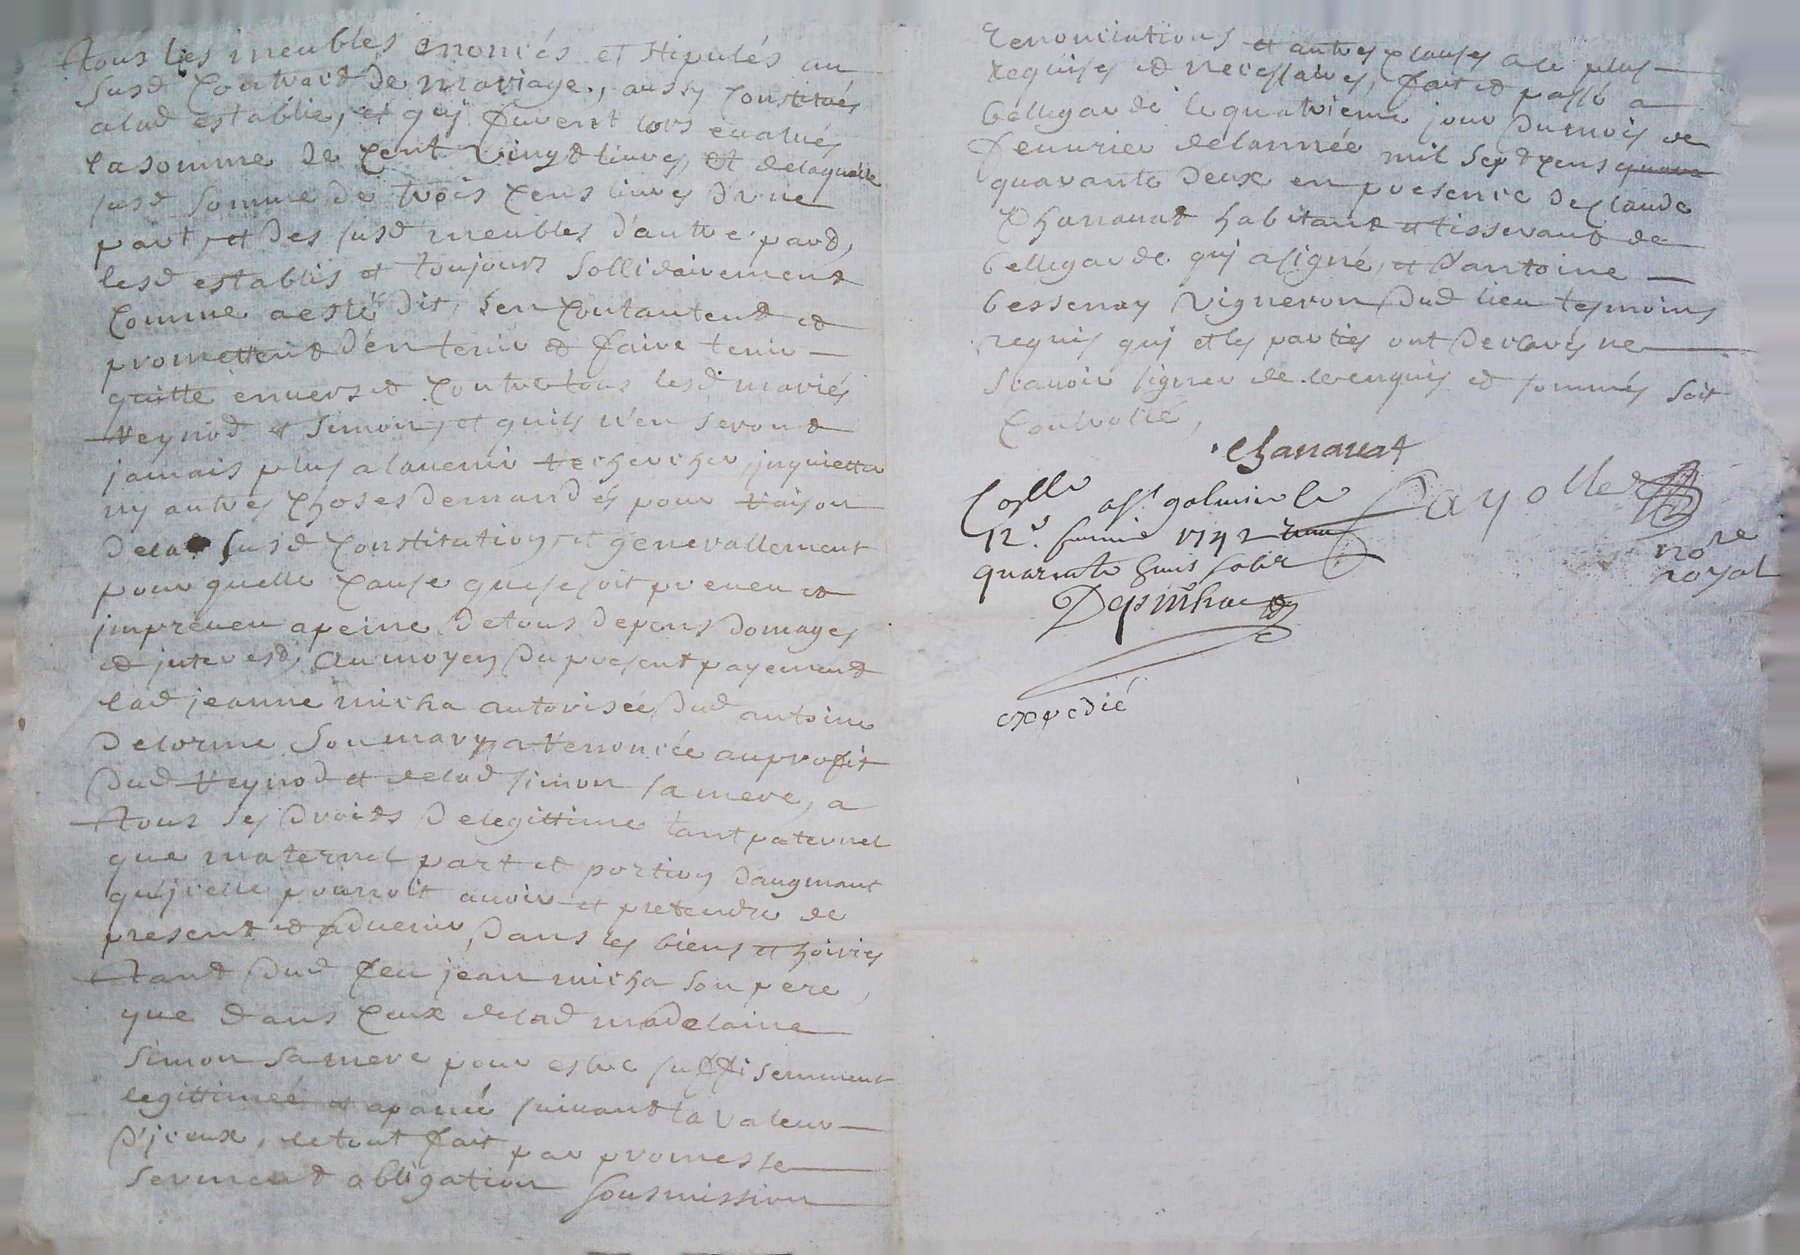 tous les meubles enoncés et stipulés au
susd contract de mariage, aussy constitués
alad establie, et quj furent lors evalués
la somme de cent vingt livres, et delaquelle
susd somme de trois cens livres d'une
part, et des susd meubles d'autre pard,
lesd establis et toujours sollidairement
comme a esté dit, s'en contantent et
promettent d'en tenir et faire tenir
quitte envers et contre tous lesd mariés
Reynod et Simon, et quils n'en seront
jamais plus a lavenir rechercher, jnquietter
ny autres choses demandés pour raison
dela susd constitution, et generallement
pour quelle cause que se soit preveu et
jmpréveu apeine de tous depens domages
et jnterests, au moyen du present payement
lad jeanne micha autorisée dud antoine
Delorme son mary, a renoncée au profit
dud Reynod et delad simon sa mere, a
tous ses droits de legittime tant paternel
que maternel part et portion daugmant
qu'jcelle pourroit avoir et pretendre de
present et advenir, dans les biens et hoiries
tant dud feu jean micha son pere,
que dans ceux delad madelaine
simon sa mere pour estre suffisemment
legittimée et apanée suivant la valeur
d'jceux, le tout fait par promesse
serment obligation sousmission
renonciations et autres clauses a ce plus
requises et necessaires, fait et passé a
bellegarde le quatrieme jour du mois de
fevurier delannée mil sept cens quara
quarante deux en presence de Claude
Chanavat habitant et tisserant de
bellegarde quj a signé, et d'antoine
bessenay vigneron dud lieu tesmoins
requis quj et les parties ont declarés ne
scavoir signer de ce enquis et sommés soit
controllé,
Chanavat
Collé a st galmier le
12e fevrier 1742
quarante huis sols
Despinhac
Fayolle
nore
royal
expedié